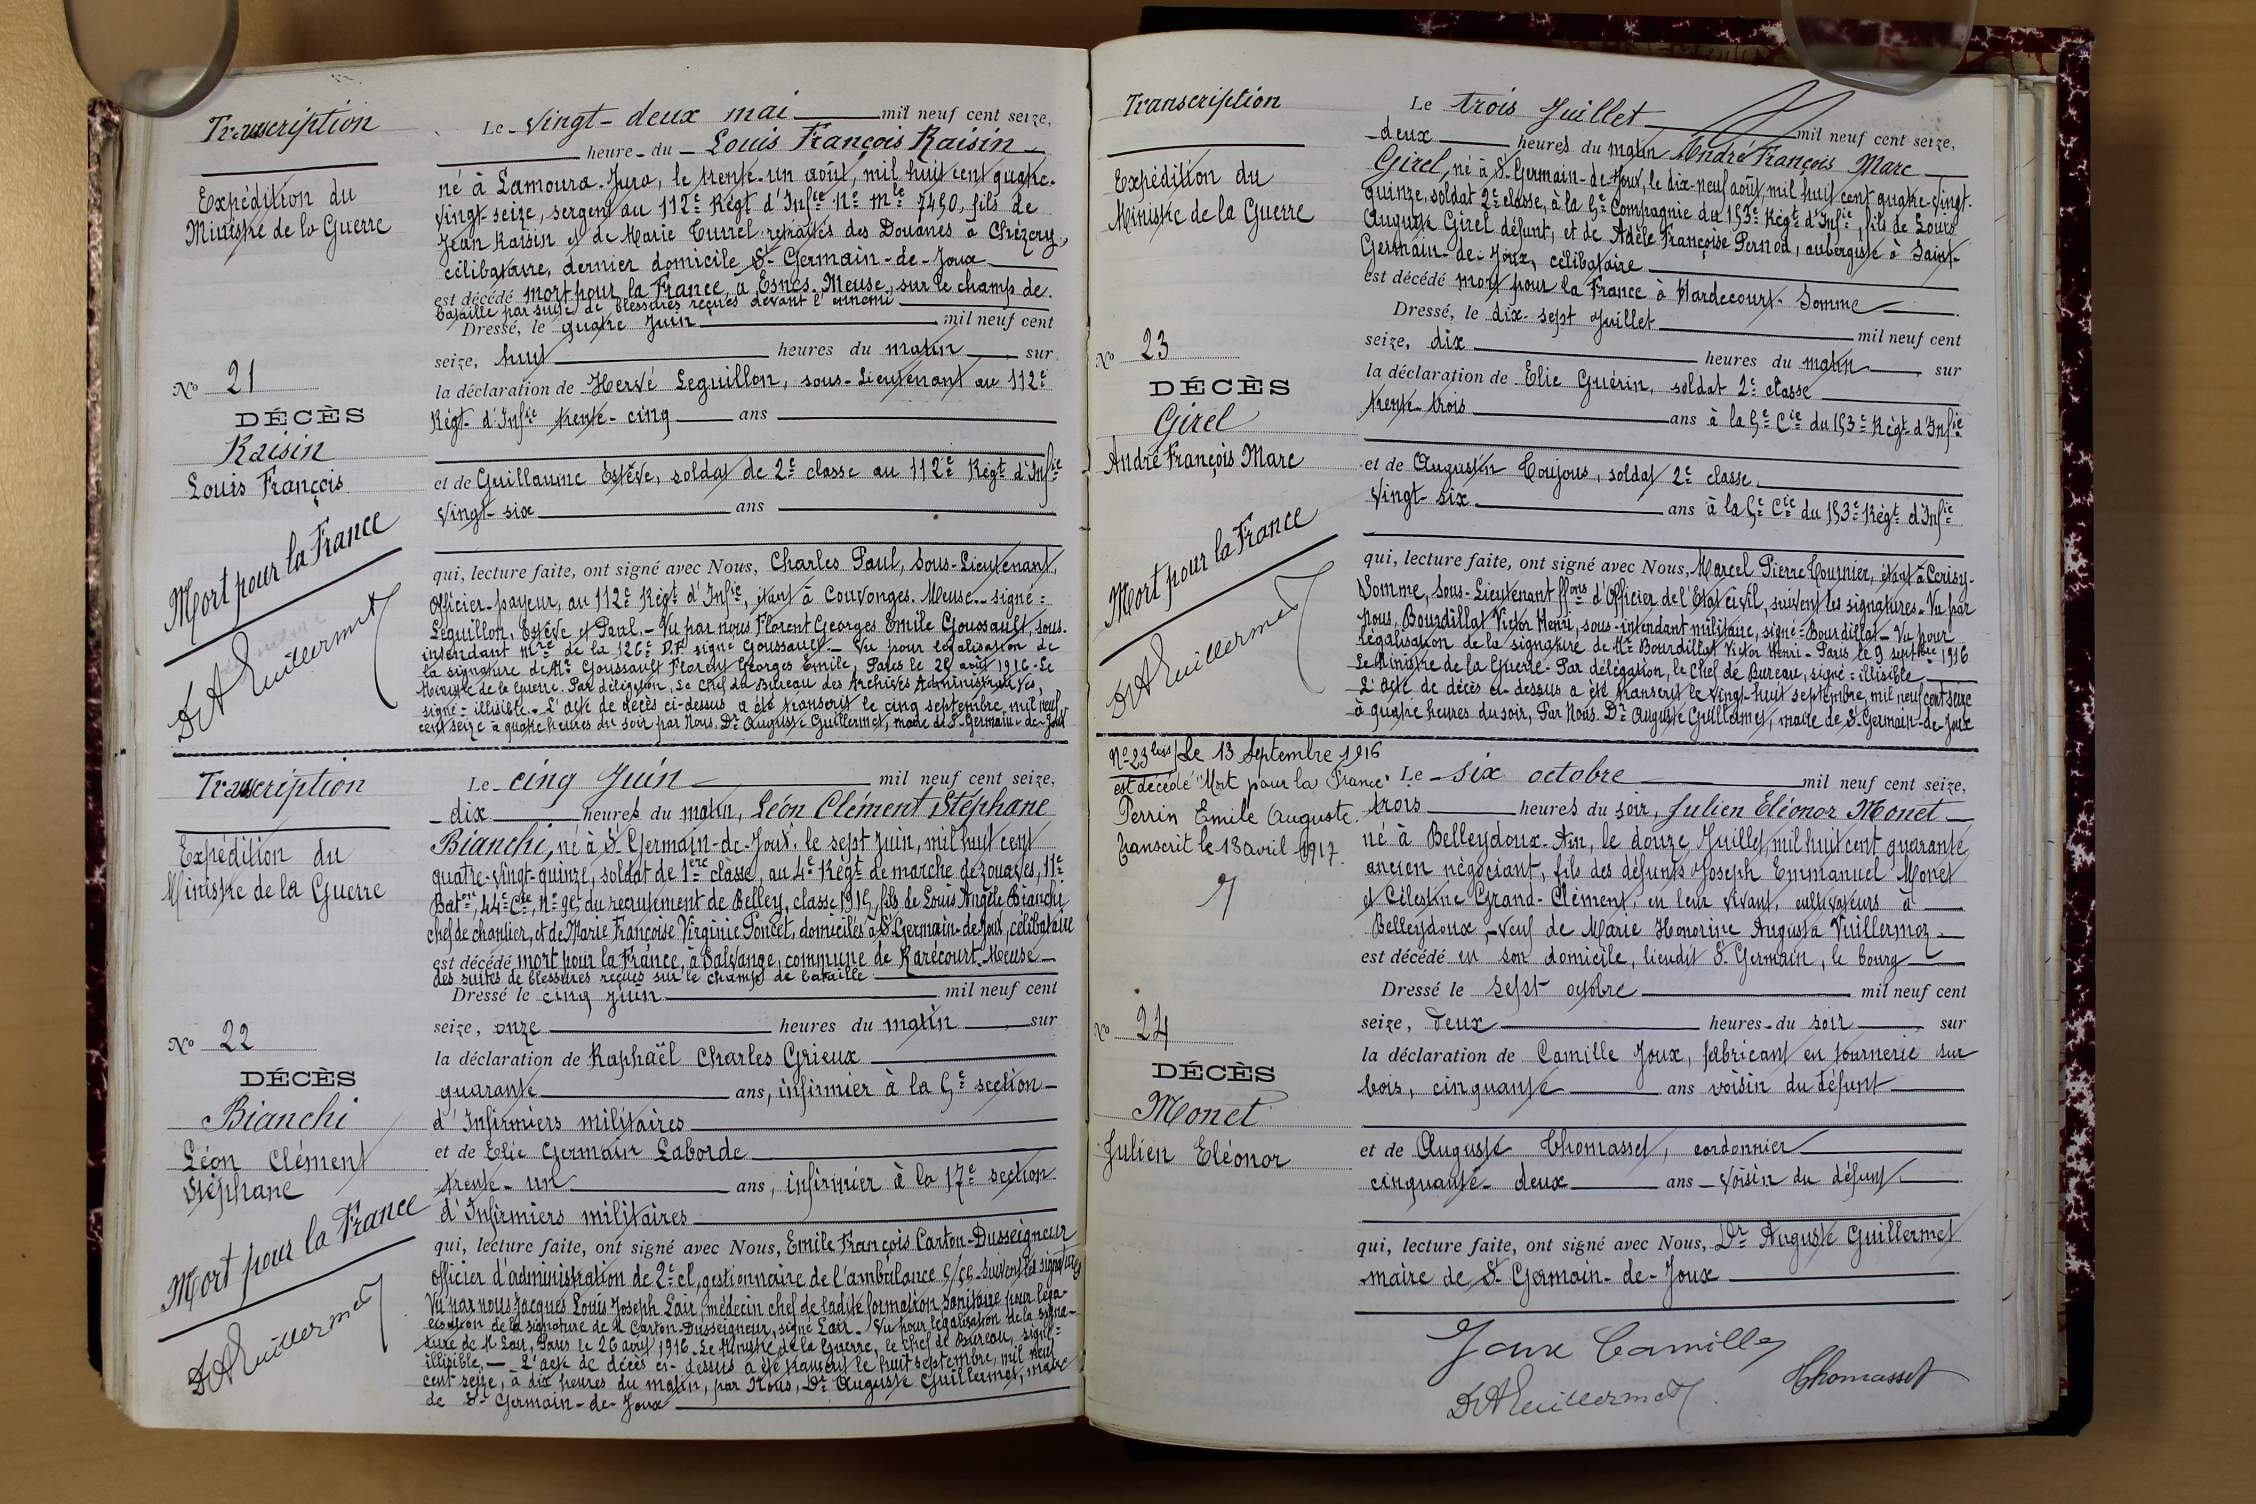 Transcription
Expédition du
Ministre de la Guerre
No 21
DÉCÈS
Raisin
Louis François
Mort pour la France
Dr A Guillermet
Le vingt-deux mai mil neuf cent seize,
heure du Louis François Raisin
né à Lamoura-Jura, le trente-un août, mil huit cent quatre-
vingt-seize, sergent au 112e Régt d'Infie No mle 7450, fils de
Jean Raisin et de Marie Turrel retraités des Douanes à Chézery,
célibataire, dernier domicile St-Germain-de-Joux
est décédé mort pour la France, à Esnes, Meuse, sur le champ de
bataille par suite de blessures reçues devant l'ennemi
Dressé, le quatre Juin mil neuf cent
seize, huit heures du matin, sur
la déclaration de Hervé Leguillon, sous-Lieutenant au 112e
Régt d'Infie trente-cinq ans
et de Guillaume Estève, soldat de 2e classe au 112e Régt d'Infie
vingt-six ans
qui, lecture faite, ont signé avec Nous, Charles Paul, Sous-Lieutenant,
Officier-payeur, au 112e Régt d'Infie, étant à Couvonges. Meuse. signé =
Leguillon, Estève et Paul. - Vu par nous Florent Georges Emile Goussault, sous-
intendant mre de la 126e D.I. signé Goussault. - Vu pour légalisation de
la signature de Mr Goussault Florent Georges Emile, Paris le 26 août 1916 - Le
Ministre de la Guerre. Par délégation, Le Chef du Bureau des Archives Administratives,
signé = illisible. - L'acte de décès ci-dessus a été transcrit le cinq septembre, mil neuf
cent seize à quatre heures du soir par Nous, Dr Auguste Guillermet, maire de St-Germain-de-Joux
Transcription
Expédition du
Ministre de la Guerre
No 22
DÉCÈS
Bianchi
Léon Clément
Stéphane
Mort pour la France
Dr A Guillermet
Le cinq Juin mil neuf cent seize,
dix heures du matin, Léon Clément Stéphane
Bianchi, né à St Germain-de-Joux, le sept Juin, mil huit cent
quatre-vingt-quinze, soldat de 1ere classe, au 4e Régt de marche de zouaves, 11e
Baton, 44e Cie, No 965 du recrutement de Belley, classe 1915, fils de Louis Angèle Bianchi
chef de chantier, et de Marie Françoise Virginie Poncet, domiciliés à St Germain-de-Joux, célibataire
est décédé mort pour la France, à Salvange, commune de Rarécourt. Meuse
des suites de blessures reçues sur le champ de bataille
Dressé le cinq juin mil neuf cent
seize, onze heures du matin, sur
la déclaration de Raphaël Charles Grieux
quarante ans, infirmier à la 5e section
d'Infirmiers militaires
et de Elie Germain Laborde
trente-un ans, infirmier à la 17e section
d'Infirmiers militaires
qui, lecture faite, ont signé avec Nous, Emile François Carton-Dusseigneur
Officier d'administration de 2e cl, gestionnaire de l'ambulance 5/55 - suivent les signatures
Vu par nous Jacques Louis Joseph Lair, médecin chef de ladite formation sanitaire pour léga-
lisation de la signature de M Carton-Dusseigneur, signé Lair. Vu pour légalisation de la signa-
ture de M Lair, Paris le 26 août 1916 - Le Ministre de la Guerre, le Chef de Bureau, signé =
illisible. - L'acte de décès ci-dessus a été transcrit le huit septembre, mil neuf
cent seize, à dix heures du matin, par Nous, Dr Auguste Guillermet, maire
de St Germain-de-Joux
Transcription
Expédition du
Ministre de la Guerre
No 23
DÉCÈS
Girel
André François Marc
Mort pour la France
Dr A Guillermet
Le trois Juillet mil neuf cent seize,
deux heures du matin André François Marc
Girel, né à St-Germain-de-Joux, le dix-neuf août mil huit cent quatre-vingt-
quinze, soldat 2e classe, à la 5e Compagnie du 153e Régt d'Infie, fils de Louis
Auguste Girel défunt, et de Adèle Françoise Pernod, aubergiste à Saint-
Germain-de-Joux, célibataire
est décédé mort pour la France à Hardecourt. Somme
Dressé, le dix-sept Juillet mil neuf cent
seize, dix heures du matin, sur
la déclaration de Elie Guérin, soldat 2e classe
trente-trois ans à la 5e Cie du 153e Régt d'Infie
et de Augustin Toujous, soldat 2e classe,
vingt-six ans à la 5e Cie du 153e Régt d'Infie
qui, lecture faite, ont signé avec Nous, Marcel Pierre Tournier, étant à Cerisy-
Somme, Sous-Lieutenant ffons d'Officier de l'Etat civil, suivent les signatures - Vu par
nous, Bourdillat Victor Henri, sous-intendant militaire, signé = Bourdillat - Vu pour
légalisation de la signature de Mr Bourdillat Victor Henri - Paris le 9 septbre 1916
Le Ministre de la Guerre - Par délégation, le Chef de Bureau, signé = illisible
L'acte de décès ci-dessus a été transcrit le vingt-huit septembre, mil neuf cent seize
à quatre heures du soir, Par Nous. Dr Auguste Guillermet, maire de St Germain-de-Joux
No 23 bis Le 13 Septembre 1916
est décédé "Mort pour la France"
Perrin Emile Auguste.
Transcrit le 18 avril 1917.
No 24
DÉCÈS
Monet
Julien Eléonor
Le six octobre mil neuf cent seize,
trois heures du soir, Julien Eléonor Monet
né à Belleydoux-Ain, le douze Juillet, mil huit cent quarante
ancien négociant, fils des défunts Joseph Emmanuel Monet
et Célestine Grand-Clément, en leur vivant, cultivateurs à
Belleydoux, - veuf de Marie Honorine Augusta Vuillermoz
est décédé en son domicile, lieudit St Germain, le bourg
Dressé le sept octobre mil neuf cent
seize, deux heures du soir, sur
la déclaration de Camille Joux, fabricant en tournerie sur
bois, cinquante ans voisin du défunt
et de Auguste Thomasset, cordonnier
cinquante-deux ans - voisin du défunt.
qui, lecture faite, ont signé avec Nous, Dr Auguste Guillermet
maire de St Germain-de-Joux
Joux Camille
Thomasset
Dr A Guillermet